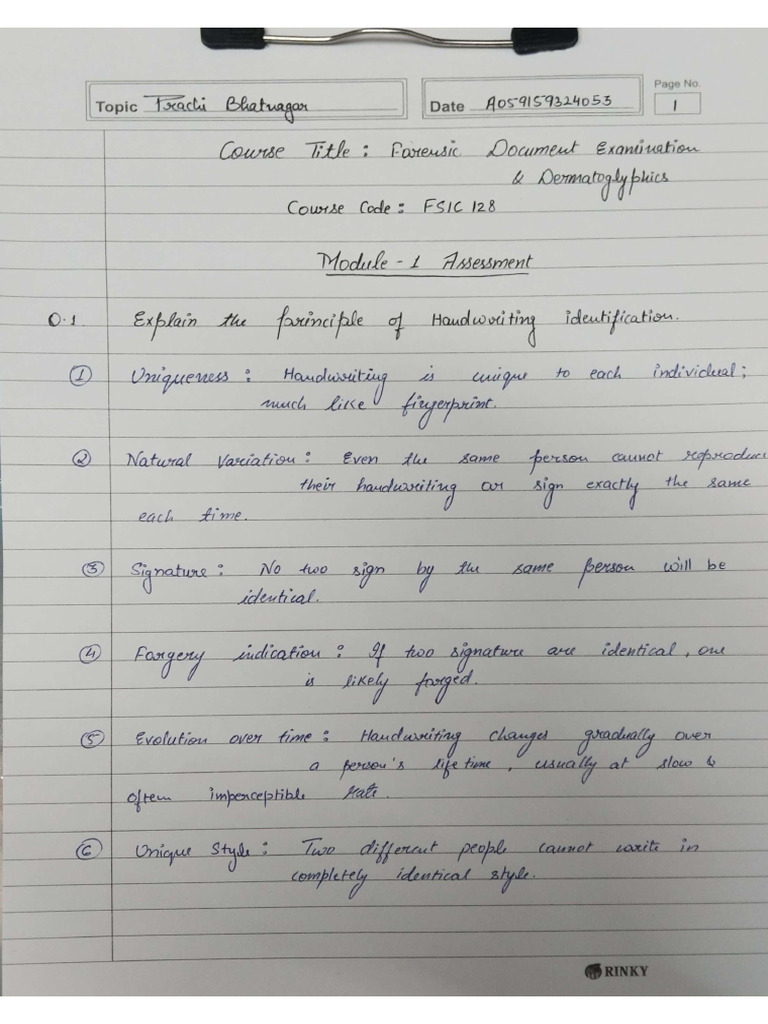 Page No.
Topic Prachi Bhatnagar Date A059159324053 1
Course Title : Forensic Document Examination
& Dermatoglyphics
Course Code : FSIC 128
Module - 1 Assessment
Q.1. Explain the principle of Handwriting identification.
① Uniqueness : Handwriting is unique to each individual;
much like fingerprint.
② Natural Variation : Even the same person cannot reproduce
their handwriting or sign exactly the same
each time.
③ Signature : No two sign by the same person will be
identical.
④ Forgery indication : If two signature are identical, one
is likely forged.
⑤ Evolution over time : Handwriting changes gradually over
a person's life time, usually at slow &
often imperceptible rate.
⑥ Unique Style : Two different people cannot write in
completely identical style.
RINKY